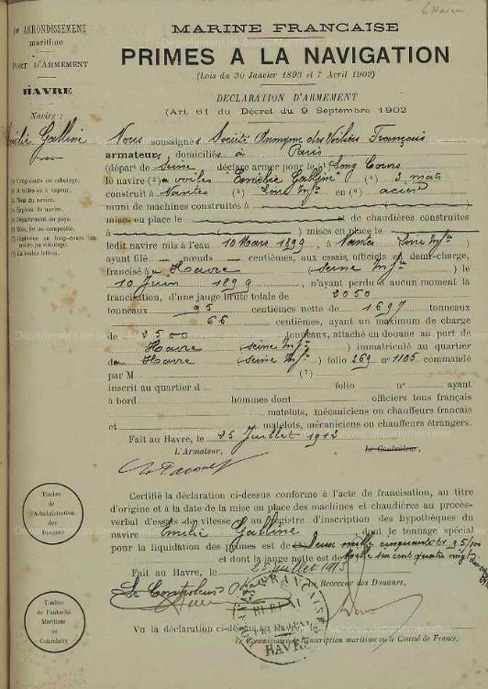 Le Havre
ARRONDISSEMENT
maritime
PORT D'ARMEMENT
HAVRE
Navire :
Emilie Galline
(1) Long cours ou cabotage.
(2) A voiles ou à vapeur.
(3) Nom du navire.
(4) Espèce de navire.
(5) Département ou pays.
(6) Bois, fer ou composite.
(8) En toutes lettres.
MARINE FRANCAISE
PRIMES A LA NAVIGATION
(Lois du 30 Janvier 1893 et 7 Avril 1902)
DÉCLARATION D'ARMEMENT
(Art. 61 du Décret du 9 Septembre 1902
Nous soussignés Société Anonyme des Voiliers Français
armateurs, domiciliés à Paris
(départ de Seine déclare armer pour le (1) Long Cours
le navire (2) à voiles Emilie Galline (4) 3 mats
construit à Nantes (5) Loire Infre en (6) acier
muni de machines construites à
mises en place le et de chaudières construites
à ) mises en place le
ledit navire mis à l'eau 10 Mars 1899, à Nantes Loire Infre
ayant filé nœuds centièmes, aux essais officiels en demi-charge,
francisé à Havre (Seine Infre) le
10 Juin 1899, n'ayant perdu à aucun moment la
francisation, d'une jauge brute totale de 2050
tonneaux 95 centièmes nette de 1697 tonneaux
66 centièmes, ayant un maximum de charge
de 2500 tonneaux, attaché en douane au port de
Havre (Seine Infre) immatriculé au quartier
du Havre (Seine Infre) folio 269 n° 1105 commandé
par M (7)
inscrit au quartier d folio n° ayant
à bord hommes dont officiers tous français
matelots, mécaniciens ou chauffeurs francais
et matelots, mécaniciens ou chauffeurs étrangers.
Fait au Havre, le 25 Juillet 1913
L'Armateur, Le Contrôleur,
Certifié la déclaration ci-dessus conforme à l'acte de francisation, au titre
d'origine et à la date de la mise en place des machines et chaudières au procès-
verbal d'essais de vitesse au registre d'inscription des hypothèques du
navire Emilie Galline dont le tonnage spécial
pour la liquidation des primes est de Deux mille cinquante tx 95/00
et dont la jauge nette est de six cent quatre vingt
Fait au Havre, le 25 juillet 1913
Le Contrôleur Le Receveur des Douanes,
Vu la déclaration ci-dessus au
Le Commissaire de l'Inscription maritime ou le Consul de France,
Timbre
de
l'Administration
des
Douanes
Timbre
de l'autorité
Maritime
ou
Consulaire
HAVRE